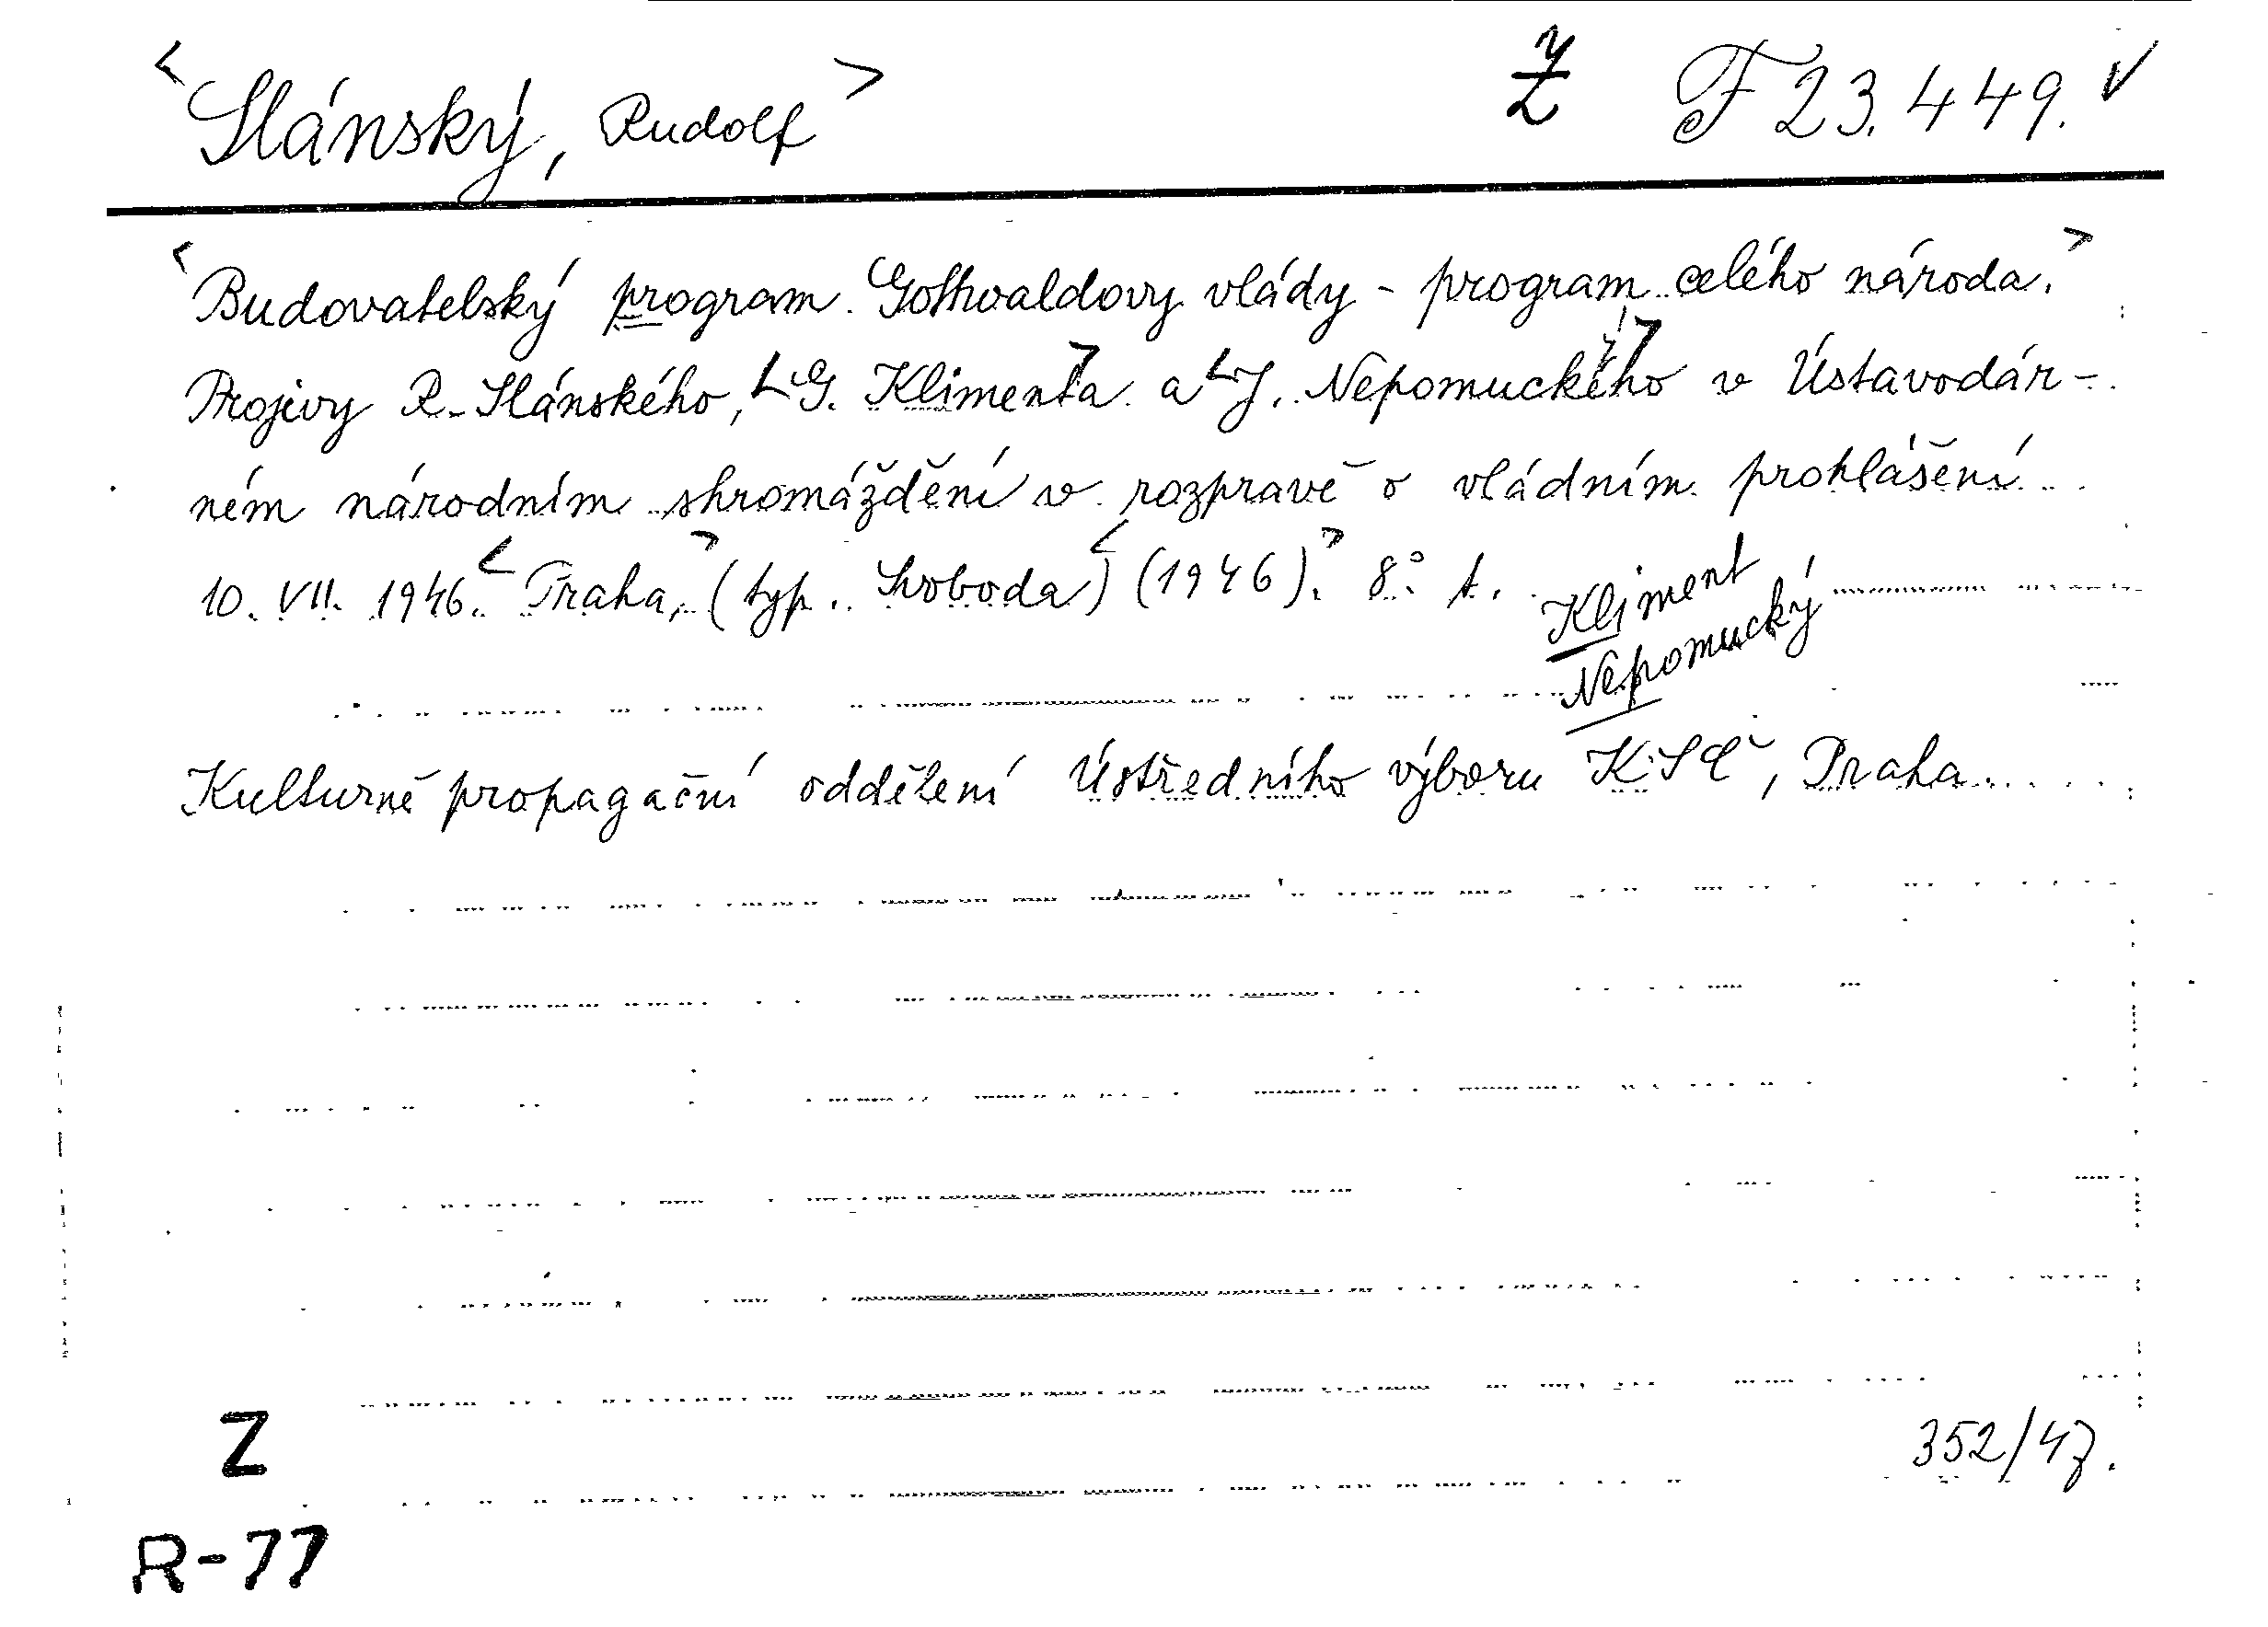 <Slánský, Rudolf> Ž F 23.449. ✓
<Budovatelský program Gottwaldovy vlády - program celého národa.>
Projevy R. Slánského, <G. Klimenta> a <J. Nepomuckého> v Ústavodár-
ném národním shromáždění v rozpravě o vládním prohlášení
10. VII. 1946. <Praha,> (typ. Svoboda) <(1946).> 8°. t.
Kliment
Nepomucký
Kulturně propagační oddělení Ústředního výboru KSČ, Praha
352/47.
Z
R-77